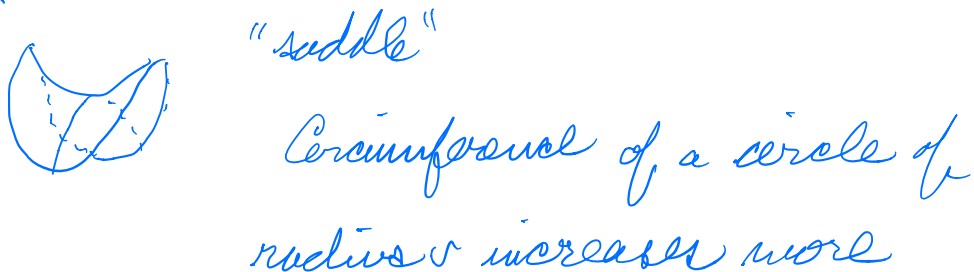 "saddle"
Circumference of a circle of
radius r increases more